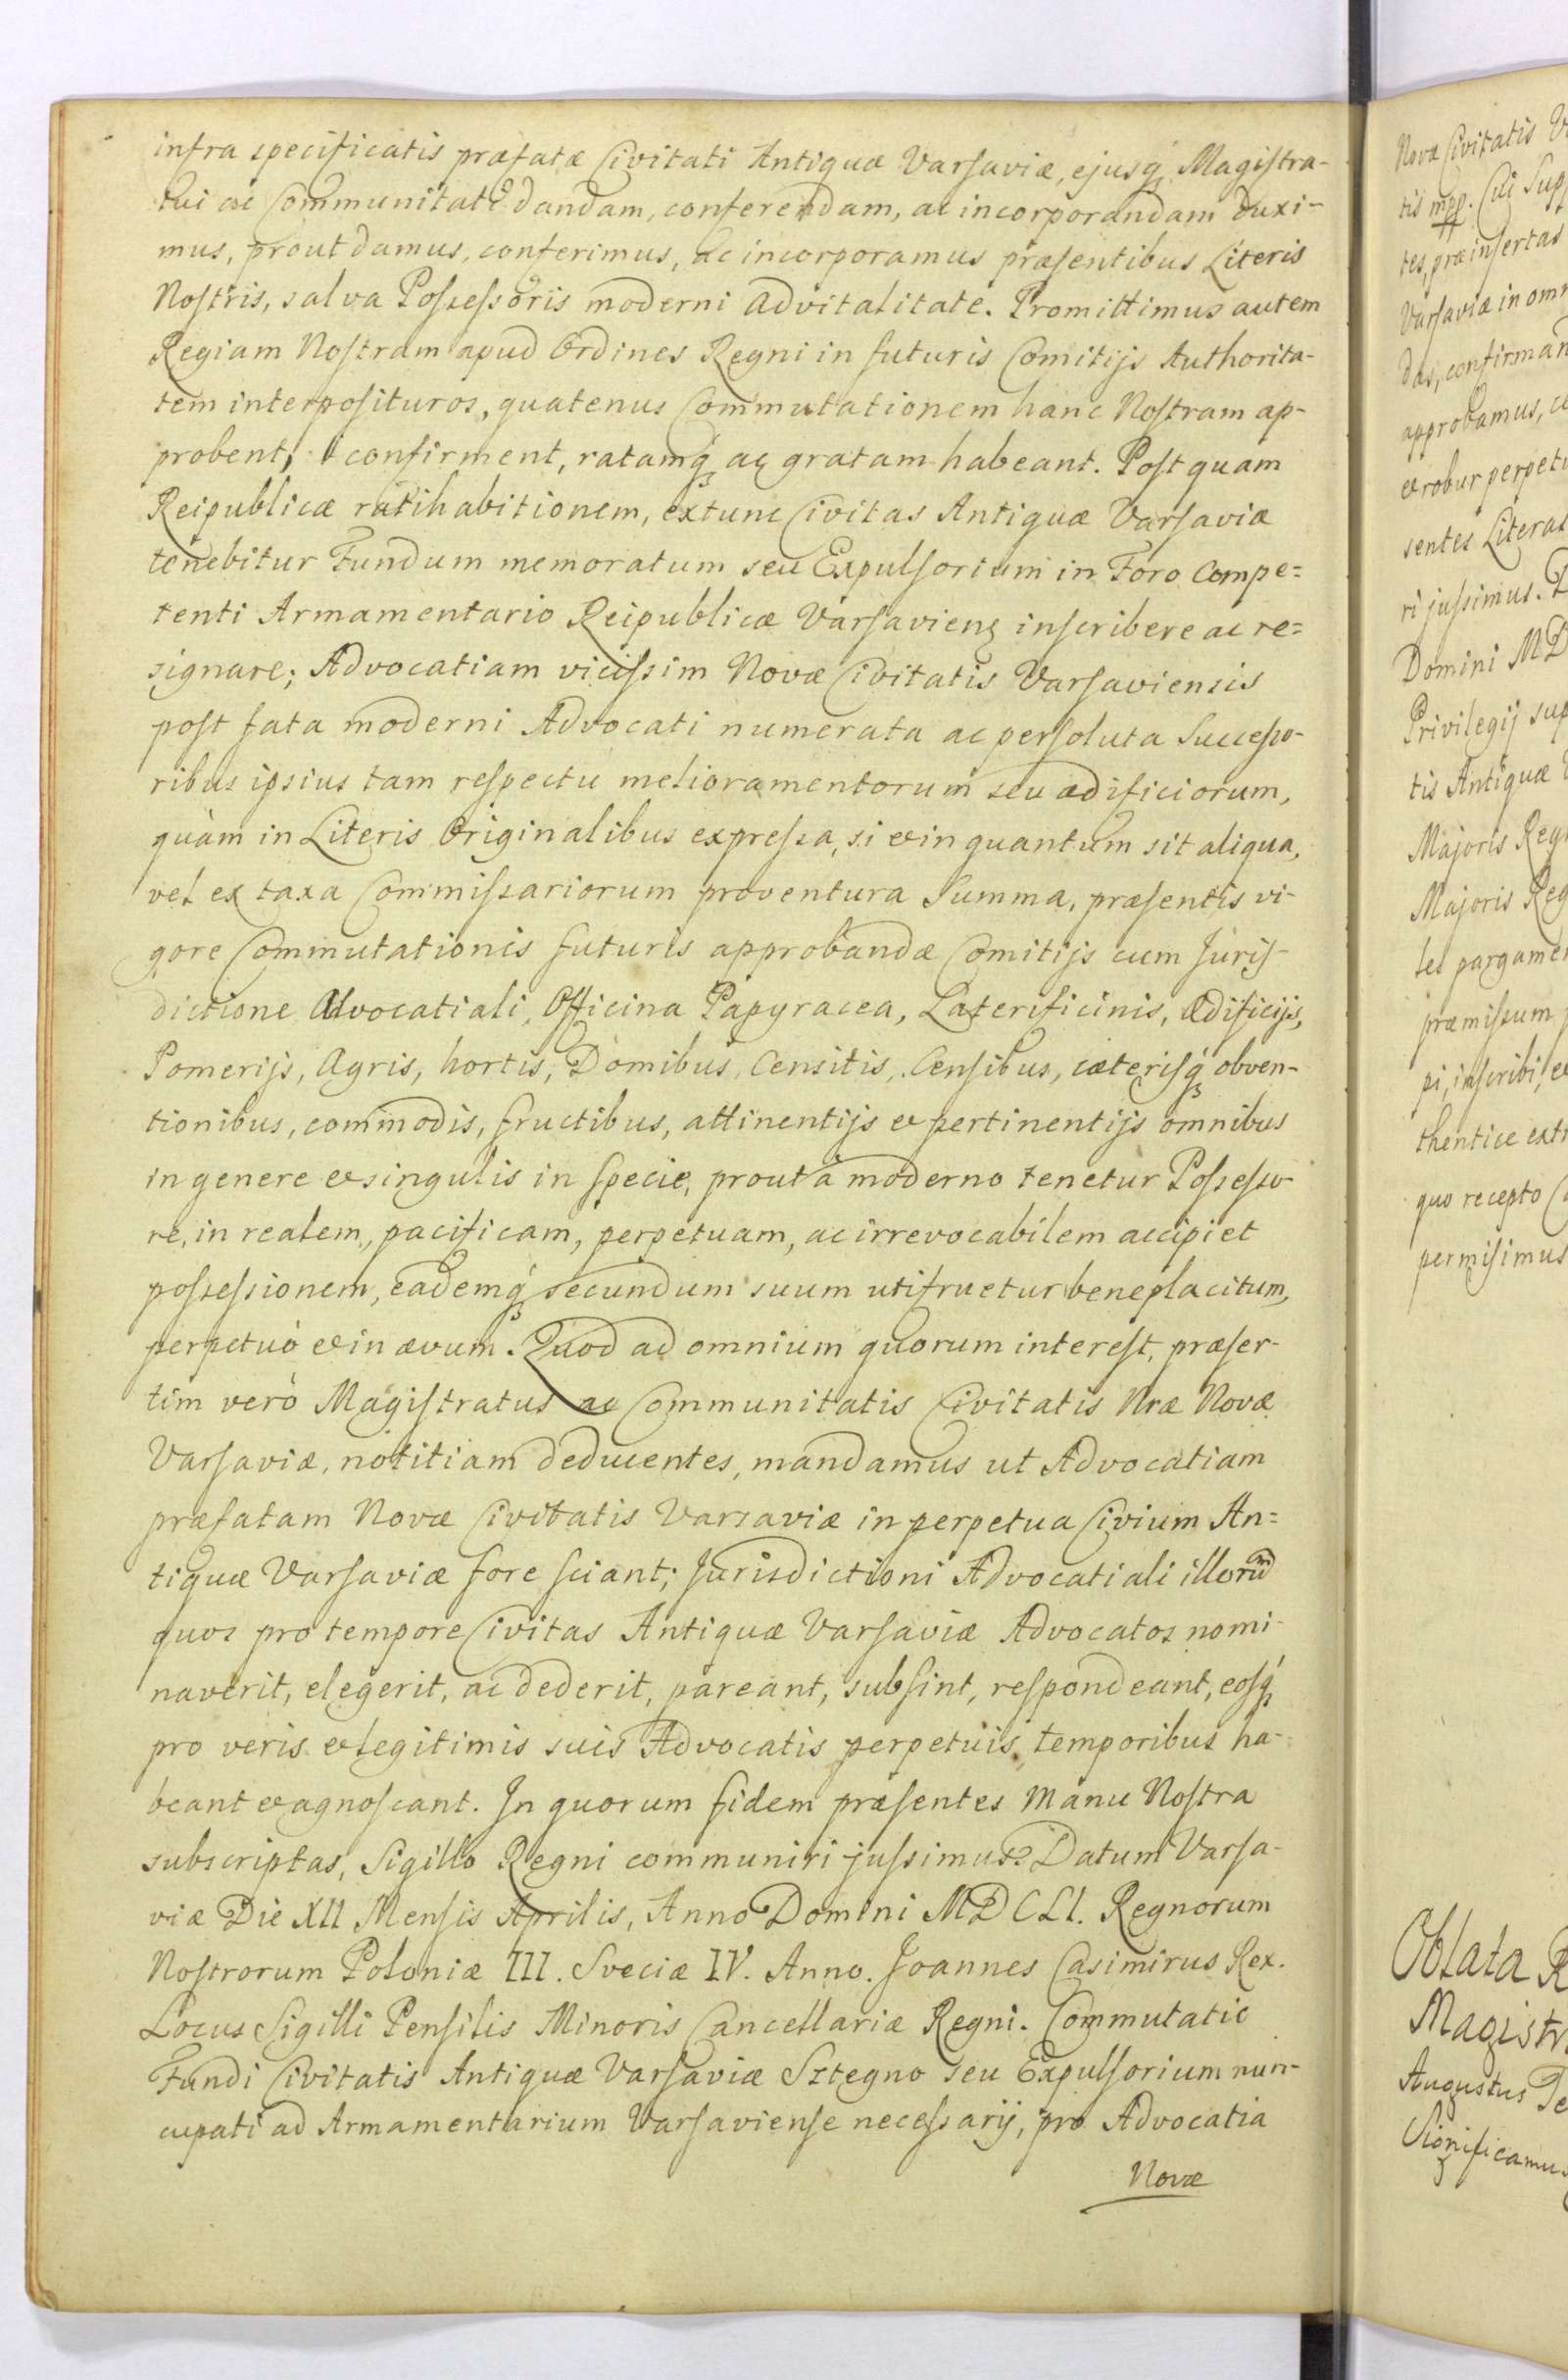 infra specificatis præfatæ Civitati Antiquæ Varsaviæ, ejusq́ꝫ Magistra-
tui ac Communitati dandam, conferendam, ac incorporandam duxi-
mus, prout damus, conferimus, ac incorporamus præsentibus Literis
Nostris, salva Possessoris moderni advitalitate. Promittimus autem
Regiam Nostram apud Ordines Regni in futuris Comitijs Authorita-
tem interposituros, quatenus Commutationem hanc Nostram ap-
probent, confirment, ratamq́ꝫ ac gratam habeant. Post quam
Reipublicæ ratihabitionem, extunc Civitas Antiquæ Varsaviæ
tenebitur Fundum memoratum seu Expulsorium in Foro Compe=
tenti Armamentario Reipublicæ Varsavienꝫ inscribere ac re=
signare; Advocatiam vicissim Novæ Civitatis Varsaviensis
post fata moderni Advocati numerata ac persoluta Successo-
ribus ipsius tam respectu melioramentorum seu ædificiorum,
quàm in Literis Originalibus expressa, si & in quantum sit aliqua,
vel ex taxa Commissariorum proventura Summa, præsentis vi-
gore Commutationis futuris approbandæ Comitijs cum Juris-
dictione Advocatiali, Officina Papyracea, Laterificinis, Ædificijs,
Pomerijs, Agris, hortis, Domibus, Censitis, Censibus, cæterisq́ꝫ obven-
tionibus, commodis, fructibus, attinentijs & pertinentijs omnibus
in genere & singulis in specie, prout à moderno tenetur Possesso-
re, in realem, pacificam, perpetuam, ac irrevocabilem accipiet
possessionem, eademq́ꝫ secundum suum utifruetur beneplacitum,
perpetuò & in ævum. Quod ad omnium quorum interest, præser-
tim verò Magistratus ac Communitatis Civitatis Nræ Novæ
Varsaviæ, notitiam deducentes, mandamus ut Advocatiam
præfatam Novæ Civitatis Varsaviæ in perpetua Civium An=
tiquæ Varsaviæ fore sciant; Jurisdictioni Advocatiali illorum
quos pro tempore Civitas Antiquæ Varsaviæ Advocatos nomi-
naverit, elegerit, ac dederit, pareant, subsint, respondeant, eosq́ꝫ
pro veris & legitimis suis Advocatis perpetuis temporibus ha-
beant & agnoscant. In quorum fidem præsentes Manu Nostra
subscriptas, Sigillo Regni communiri jussimus. Datum Varsa-
viæ Die XII Mensis Aprilis, Anno Domini MDCLI. Regnorum
Nostrorum Poloniæ III. Sveciæ IV. Anno. Joannes Casimirus Rex.
Locus Sigilli Pensilis Minoris Cancellariæ Regni. Commutatio
Fundi Civitatis Antiquæ Varsaviæ Sztegno seu Expulsorium nun-
cupati ad Armamentarium Varsaviense necessarij, pro Advocatia
Novæ
Novæ Civitatis
tis mpp. Cui Supp
tes, præinsertas
Varsaviæ in omn
das, confirman
approbamus,
& robur perpetu
sentes Literas
ri jussimus.
Domini MD
Privilegij sup
tis Antiquæ
Majoris Reg
Majoris Reg
let pargamen
præmissum
pi, inscribi,
thentice extr
quo recepto
permisimus
Oblata
Magistr
Augustus
Significamus